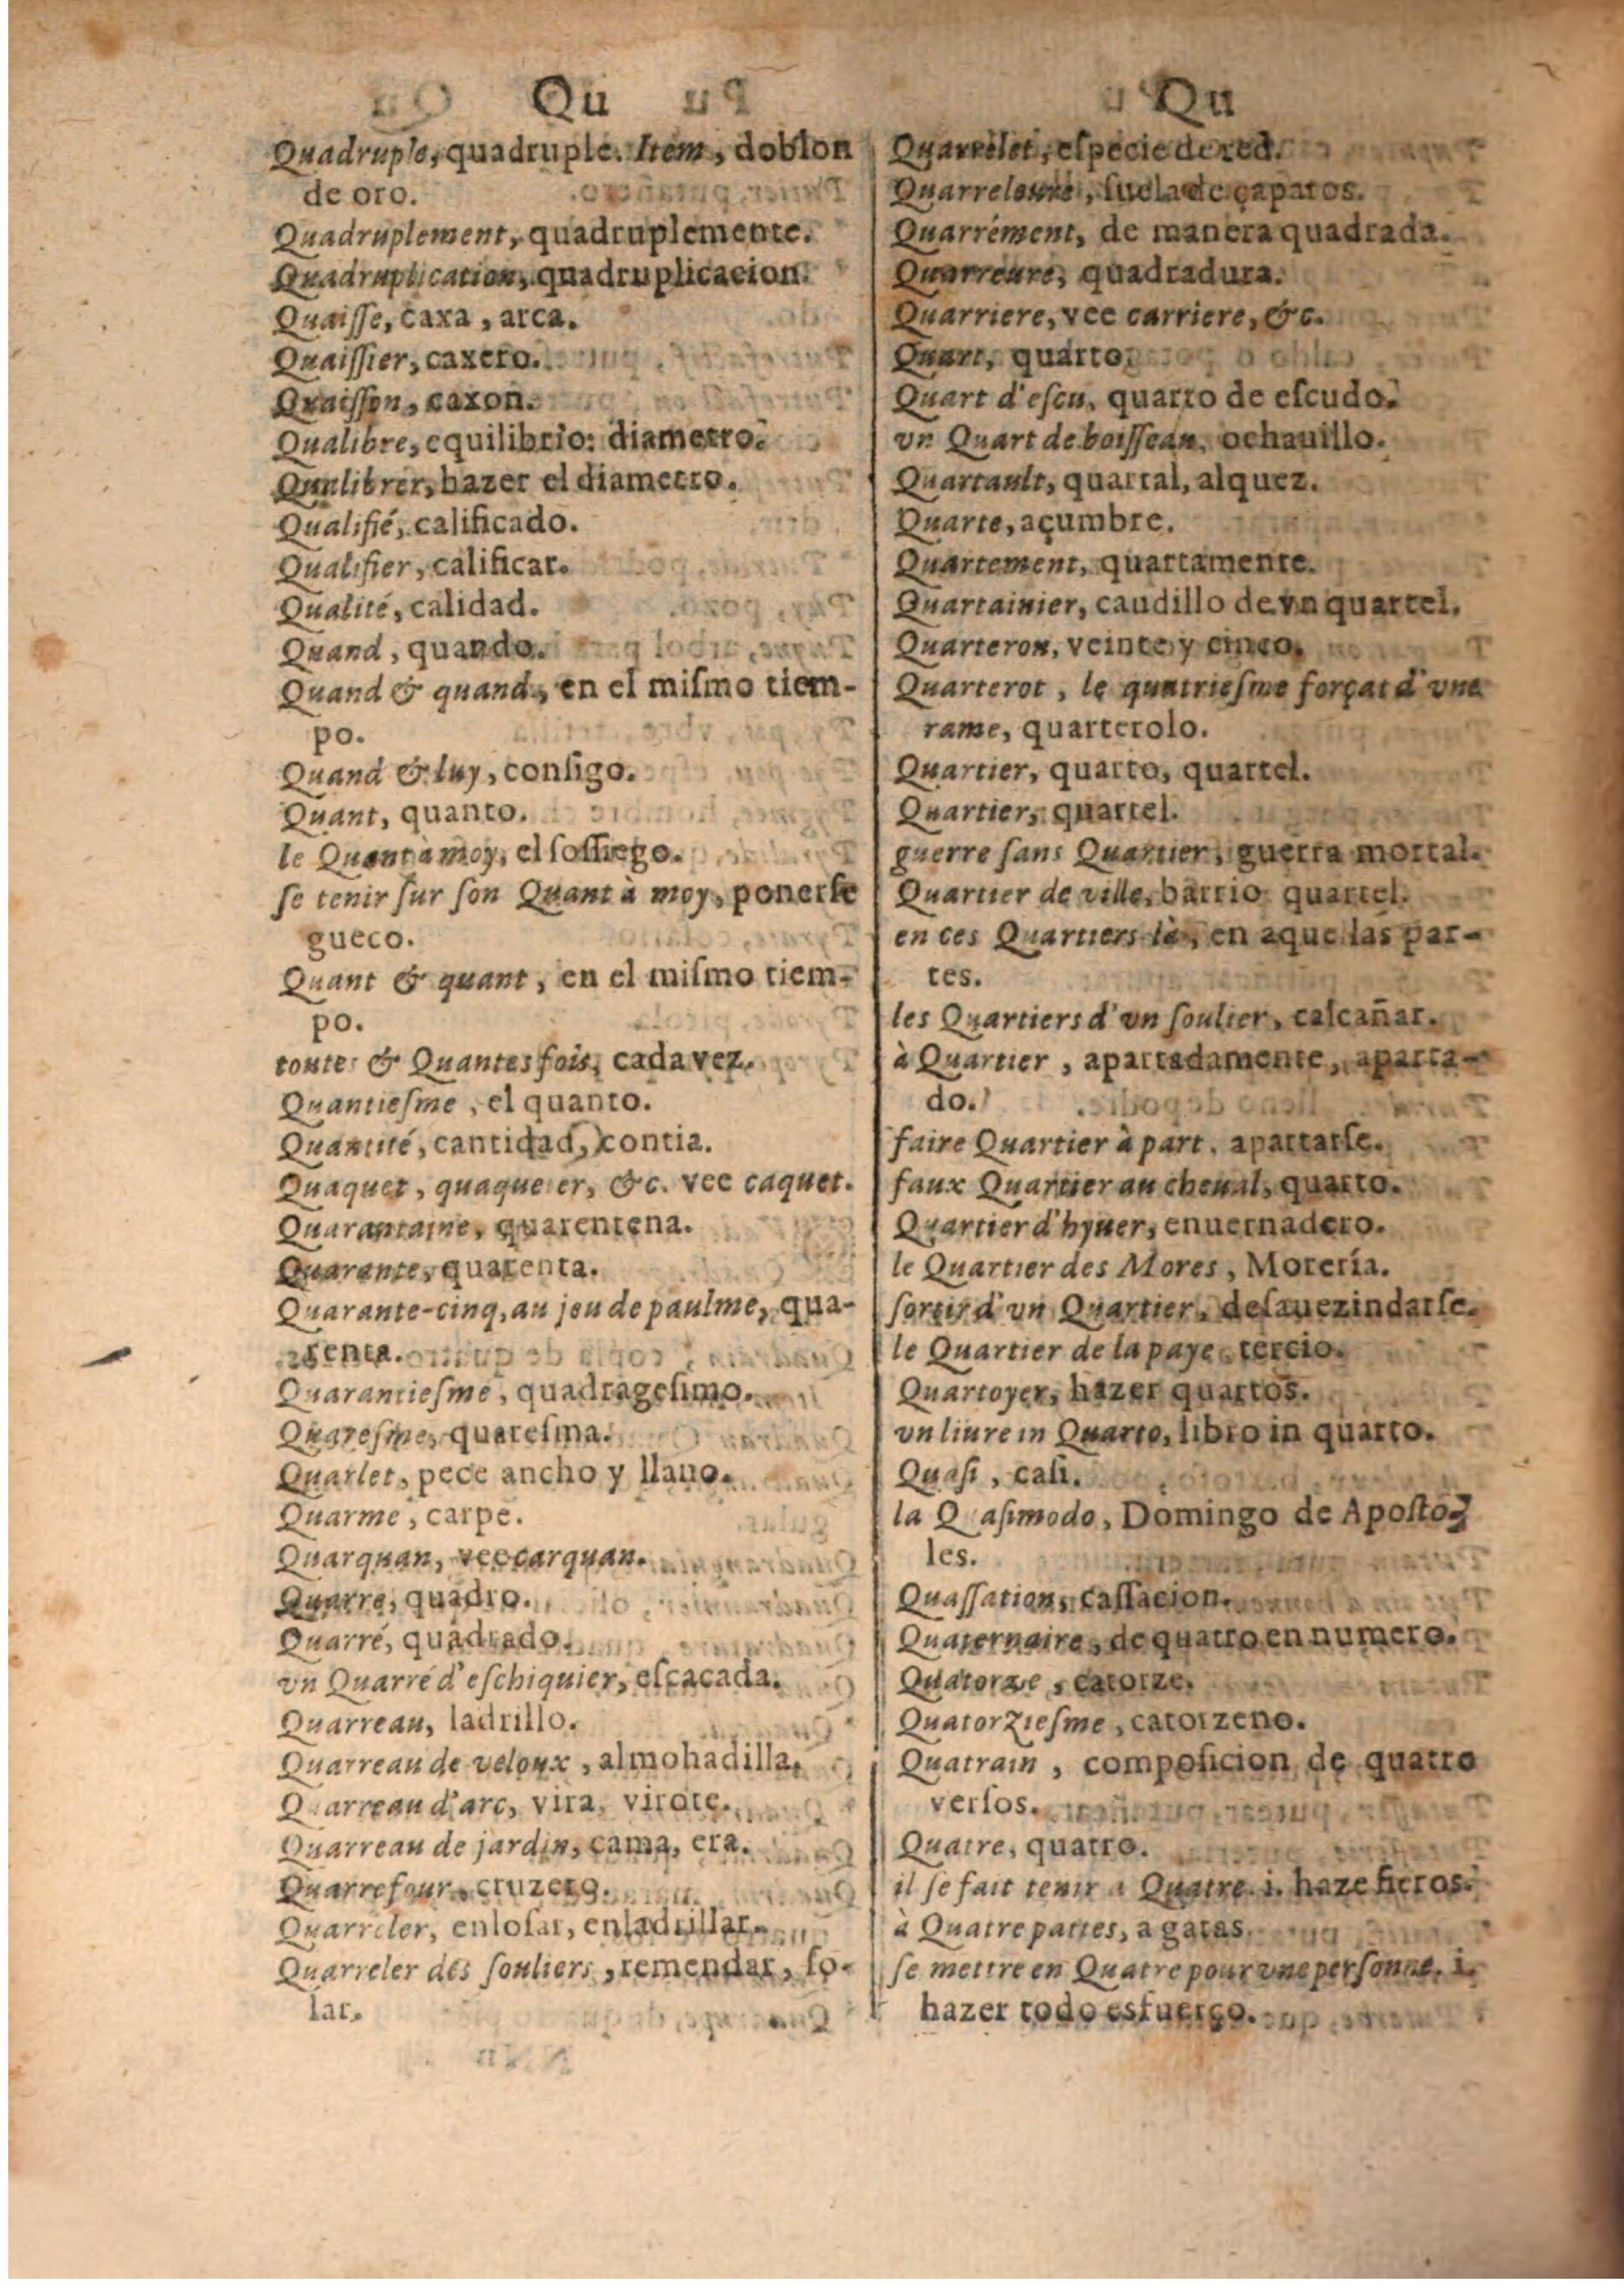 Qu
Quadruple, quadruple. Item, doblon
de oro.
Quadruplement, quadruplemente.
Quadruplication, quadruplicacion.
Quaisse, caxa, arca.
Quaissier, caxero.
Quaisson, caxon.
Qualibre, equilibrio: diametro.
Qualibrer, hazer el diametro.
Qualifié, calificado.
Qualifier, calificar.
Qualité, calidad.
Quand, quando.
Quand & quand, en el miſmo tiem-
po.
Quand & luy, conſigo.
Quant, quanto.
le Quant à moy, el ſoſſiego.
ſe tenir ſur ſon Quant à moy, ponerſe
gueco.
Quant & quant, en el miſmo tiem-
po.
toute: & Quantes fois, cada vez.
Quantieſme, el quanto.
Quantité, cantidad, contia.
Quaquet, quaqueter, &c. vee caquet.
Quarantaine, quarentena.
Quarante, quarenta.
Quarante-cinq, au jeu de paulme, qua-
renta.
Quarantieſme, quadrageſimo.
Quareſme, quareſma.
Quarlet, pece ancho y llano.
Quarme, carpe.
Quarquan, vee carquan.
Quarre, quadro.
Quarré, quadrado.
vn Quarré d'eſchiquier, eſcacada.
Quarreau, ladrillo.
Quarreau de veloux, almohadilla.
Quarreau d'arc, vira, virote.
Quarreau de jardin, cama, era.
Quarrefour, cruzero.
Quarreler, enloſar, enladrillar.
Quarreler des ſouliers, remendar, ſo-
lar.
Qu
Quarrelet, eſpecie de red.
Quarreleure, ſuela de çapatos.
Quarrément, de manera quadrada.
Quarreure, quadradura.
Quarriere, vee carriere, &c.
Quart, quarto.
Quart d'eſcu, quarto de eſcudo.
vn Quart de boiſſeau, ochauillo.
Quartault, quartal, alquez.
Quarte, açumbre.
Quartement, quartamente.
Quartainier, caudillo de vn quartel.
Quarteron, veinte y cinco.
Quarterot, le quatrieſme forçat d'vne
rame, quarterolo.
Quartier, quarto, quartel.
Quartier, quartel.
guerre ſans Quartier, guerra mortal.
Quartier de ville, barrio quartel.
en ces Quartiers là, en aquellas par-
tes.
les Quartiers d'vn ſoulier, calcañar.
à Quartier, apartadamente, aparta-
do.
faire Quartier à part, apartarſe.
faux Quartier au cheual, quarto.
Quartier d'hyuer, enuernadero.
le Quartier des Mores, Morería.
ſortir d'vn Quartier, deſauezindarſe.
le Quartier de la paye, tercio.
Quartoyer, hazer quartos.
vn liure in Quarto, libro in quarto.
Quaſi, caſi.
la Quaſimodo, Domingo de Apoſto-
les.
Quaſſation, caſſacion.
Quaternaire, de quatro en numero.
Quatorze, catorze.
Quatorzieſme, catorzeno.
Quatrain, compoſicion de quatro
verſos.
Quatre, quatro.
il ſe fait tenir à Quatre. i. haze fieros.
à Quatre pattes, a gatas.
ſe mettre en Quatre pour vne perſonne. i.
hazer todo esfuerço.